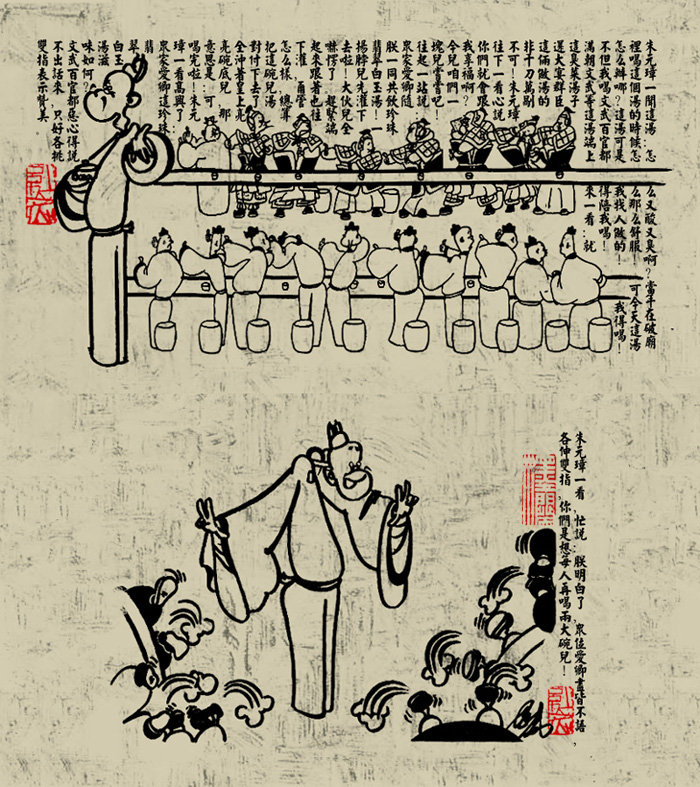 朱元璋一聞這湯:怎么又酸又臭啊?當年在破廟
裡喝這個湯的時候怎么那么舒服!可今天這湯
怎么辦哪?這湯可是我找人做的!我得喝!
不但我喝文武百官都得陪我喝!
滿朝文武等這湯端上來一看:就
這臭菜湯子
還大宴群臣
這倆做湯的
非千刀萬剮
不可!朱元璋
往下一看心說
你們就會跟
我享福啊?
今兒咱們一
塊兒嘗嘗吧!
往起一站說:
眾家愛卿隨
朕一同共飲珍珠
翡翠白玉湯!
揚脖兒先灌下
去啦!大伙兒全
愣了 趕緊端
起來跟著也往
下灌,甭管
怎么樣,總算
把這碗兒湯
對付下去了
全沖著皇上亮
亮碗底兒 那
意思是:可
喝完啦!朱元
璋一看高興了:
眾家愛卿這珍珠
翡
翠
白玉
湯滋
味如何?
文武百官都惡心得說
不出話來 只好各挑
雙指表示贊美
朱元璋一看,忙說:朕明白了 眾位愛卿盡皆不語,
各伸雙指,你們是想每人再喝兩大碗兒!